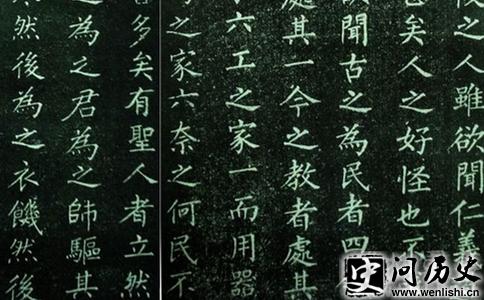 後之人雖欲聞仁義
矣人之好怪也不
欲聞古之為民者四
處其一今之教者處其
六工之家一而用器
之家六奈之何民不
多矣有聖人者立然
之為之君為之師驅其
然後為之衣饑然後
史问历史
www.wenlishi.cn